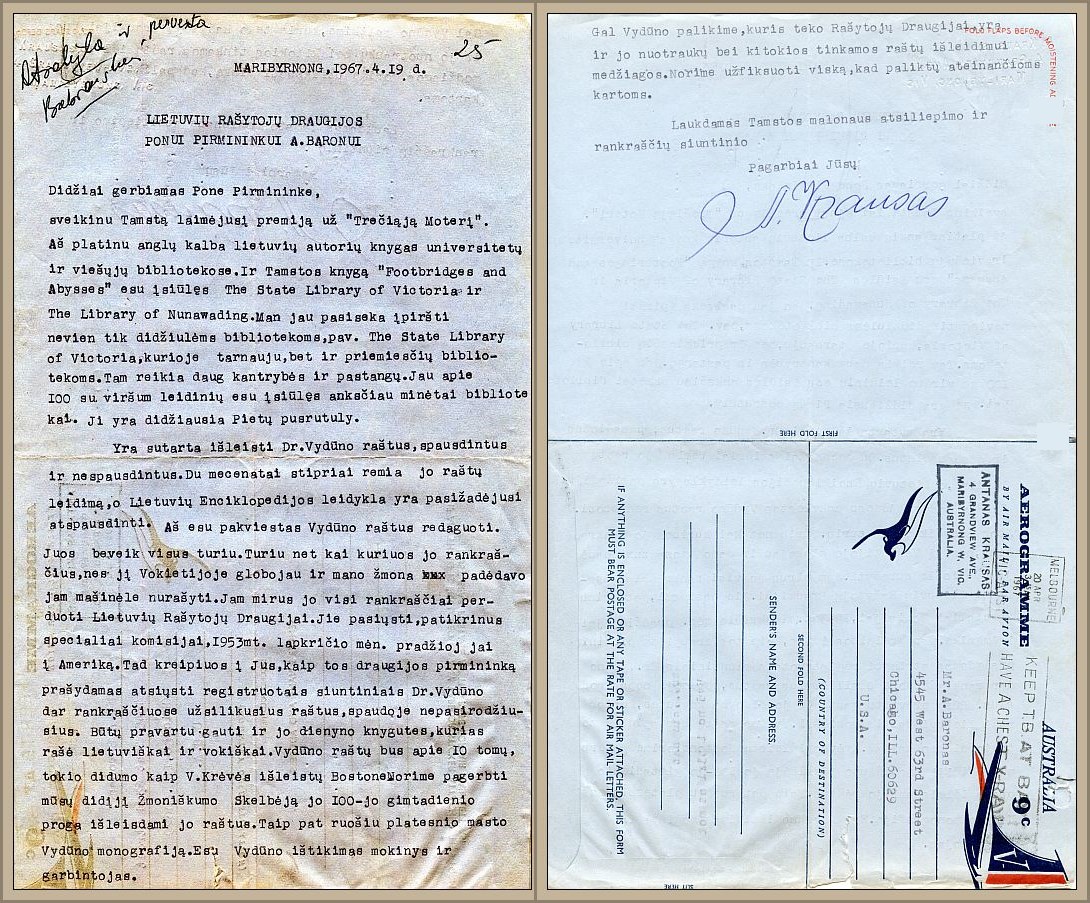 25
MARIBYRNONG,1967.4.19 d.
LIETUVIŲ RAŠYTOJŲ DRAUGIJOS
PONUI PIRMININKUI A.BARONUI
Didžiai gerbiamas Pone Pirmininke,
sveikinu Tamstą laimėjusį premiją už "Trečiąją Moterį".
Aš platinu anglų kalba lietuvių autorių knygas universitetų
ir viešųjų bibliotekose.Ir Tamstos knygą "Footbridges and
Abysses" esu įsiūlęs The State Library of Victoria ir
The Library of Nunawading.Man jau pasiseka įpiršti
nevien tik didžiulėms bibliotekoms,pav. The State Library
of Victoria,kurioje tarnauju,bet ir priemiesčių biblio-
tekoms.Tam reikia daug kantrybės ir pastangų.Jau apie
IOO su viršum leidinių esu įsiūlęs anksčiau minėtai bibliote
kai. Ji yra didžiausia Pietų pusrutuly.
Yra sutarta išleisti Dr.Vydūno raštus,spausdintus
ir nespausdintus.Du mecenatai stipriai remia jo raštų
leidimą,o Lietuvių Enciklopedijos leidykla yra pasižadėjusi
atspausdinti. Aš esu pakviestas Vydūno raštus redaguoti.
Juos beveik visus turiu.Turiu net kai kuriuos jo rankraš-
čius,nes jį Vokietijoje globojau ir mano žmona xxx padėdavo
jam mašinėle nurašyti.Jam mirus jo visi rankraščiai per-
duoti Lietuvių Rašytojų Draugijai.Jie pasiųsti,patikrinus
specialiai komisijai,I953mt. lapkričio mėn. pradžioj jai
į Ameriką.Tad kreipiuos į Jus,kaip tos draugijos pirmininką
prašydamas atsiųsti registruotais siuntiniais Dr.Vydūno
dar rankraščiuose užsilikusius raštus,spaudoje nepasirodžiu-
sius. Būtų pravartu gauti ir jo dienyno knygutes,kurias
rašė lietuviškai ir vokiškai.Vydūno raštų bus apie IO tomų,
tokio didumo kaip V.Krėvės išleistų BostoneNorime pagerbti
mūsų didįjį Žmoniškumo Skelbėją jo IOO-jo gimtadienio
proga išleisdami jo raštus.Taip pat ruošiu platesnio masto
Vydūno monografiją.Esu Vydūno ištikimas mokinys ir
garbintojas.
Gal Vydūno palikime,kuris teko Rašytojų Draugijai,yra
ir jo nuotraukų bei kitokios tinkamos raštų išleidimui
medžiagos.Norime užfiksuoti viską,kad paliktų ateinančioms
kartoms.
Laukdamas Tamstos malonaus atsiliepimo ir
rankraščių siuntinio
Pagarbiai Jūsų
A. Krausas
FOLD FLAPS BEFORE MOISTENING
FIRST FOLD HERE
AEROGRAMME
BY AIR MAIL PAR AVION
ANTANAS KRAUSAS
4 GRANDVIEW AVE.,
MARIBYRNONG W. VIC.
AUSTRALIA.
MELBOURNE
20 APR
1967
KEEP TB AT BAY
HAVE A CHEST X-RAY
AUSTRALIA
9c
Mr.A.Baronas
4545 West 63rd Street
Chicago,ILL.60629
U.S.A.
(COUNTRY OF DESTINATION)
SECOND FOLD HERE
SENDER'S NAME AND ADDRESS.
IF ANYTHING IS ENCLOSED OR ANY TAPE OR STICKER ATTACHED, THIS FORM
MUST BEAR POSTAGE AT THE RATE FOR AIR MAIL LETTERS.
SLIT HERE